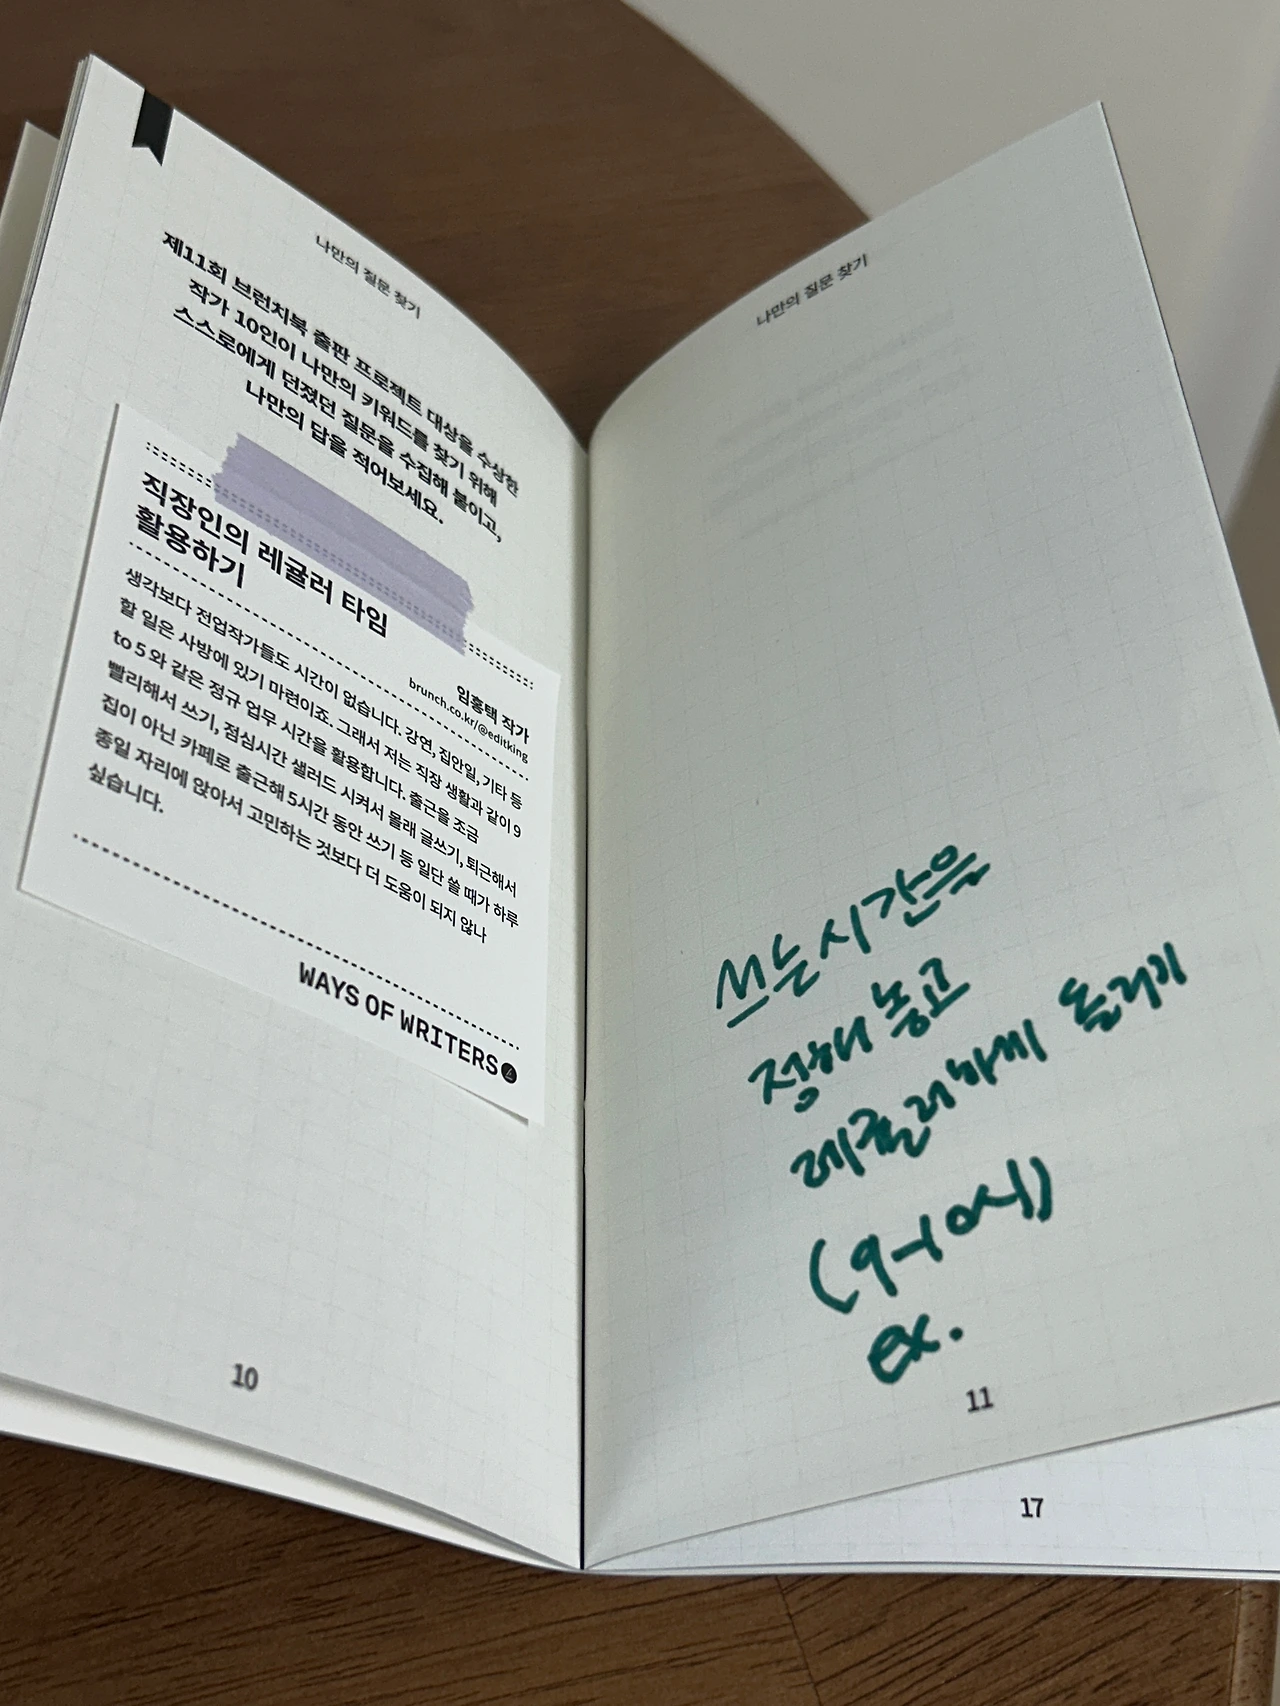 나만의 질문 찾기
제11회 브런치북 출판 프로젝트 대상을 수상한
작가 10인이 나만의 키워드를 찾기 위해
스스로에게 던졌던 질문을 수집해 붙이고,
나만의 답을 적어보세요.
직장인의 레귤러 타임
활용하기
임홍택 작가
brunch.co.kr/@editking
생각보다 전업작가들도 시간이 없습니다. 강연, 집안일, 기타 등
할 일은 사방에 있기 마련이죠. 그래서 저는 직장 생활과 같이 9
to 5 와 같은 정규 업무 시간을 활용합니다. 출근을 조금
빨리해서 쓰기, 점심시간 샐러드 시켜서 몰래 글쓰기, 퇴근해서
집이 아닌 카페로 출근해 5시간 동안 쓰기 등 일단 쓸 때가 하루
종일 자리에 앉아서 고민하는 것보다 더 도움이 되지 않나
싶습니다.
WAYS OF WRITERS
10
나만의 질문 찾기
쓰는 시간을
정해 놓고
레귤러하게 돌리기
(9-10시)
ex.
11
17